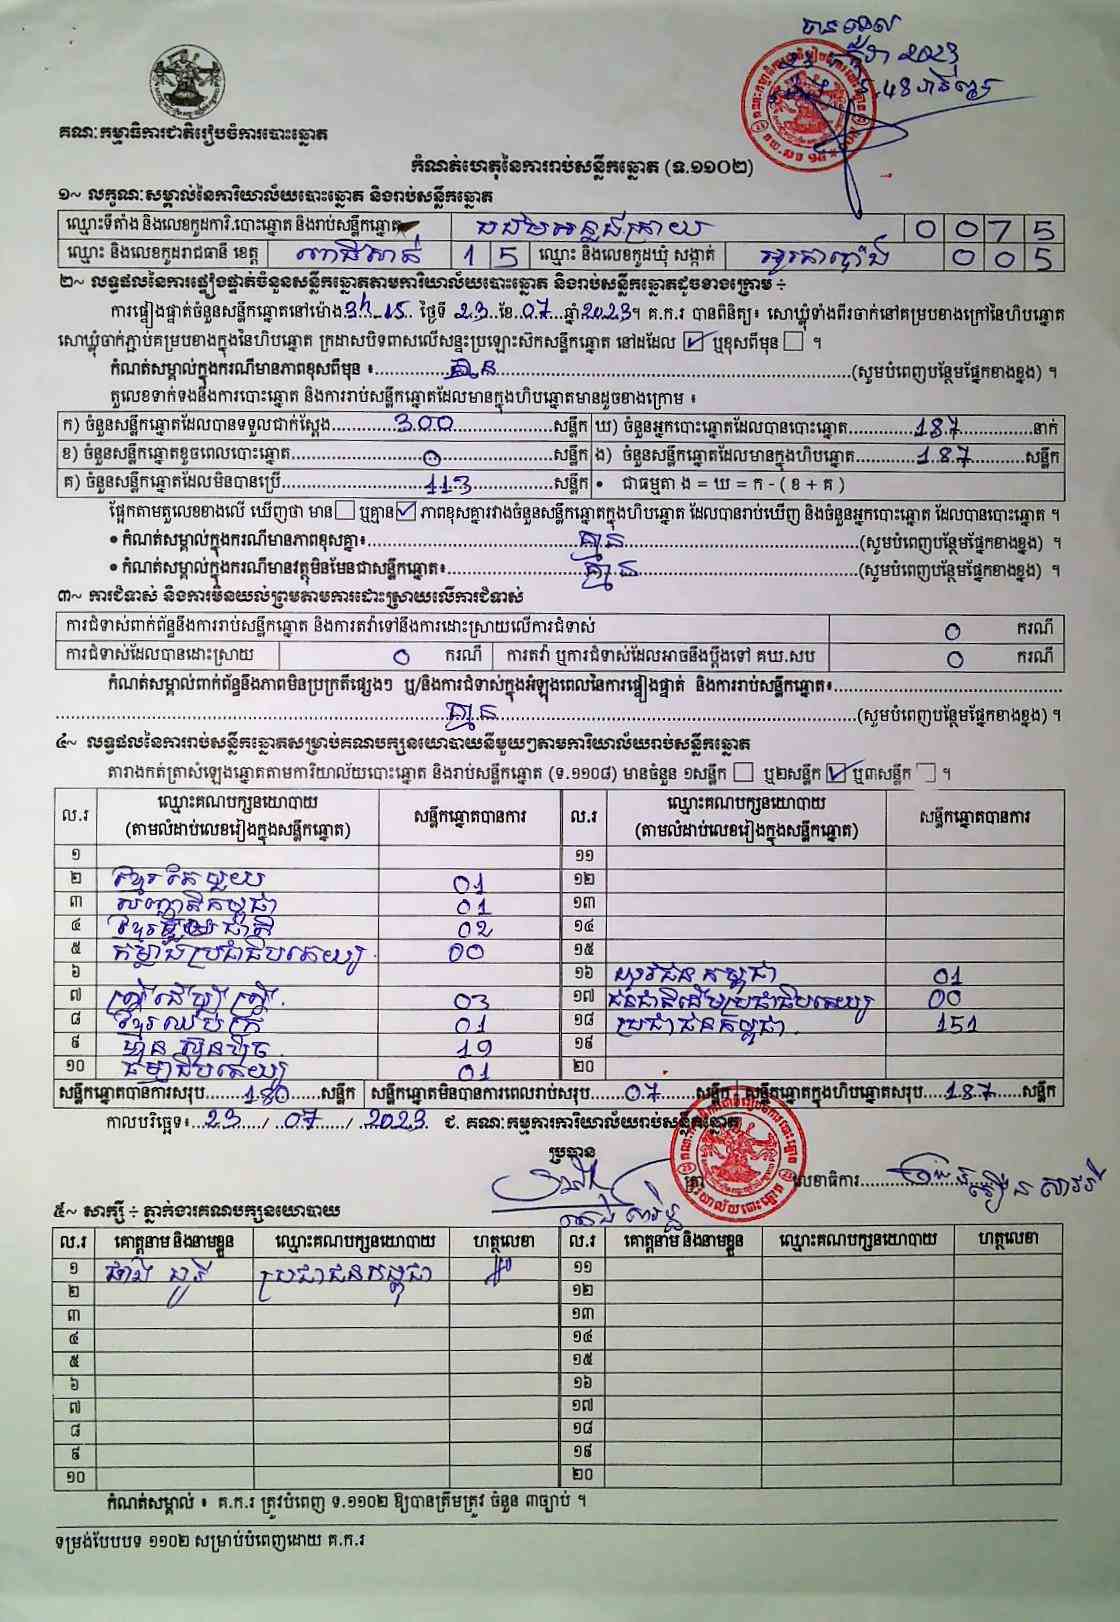 បានទទួល
២៣ កក្កដា ២០២៣
គណៈកម្មាធិការជាតិរៀបចំការបោះឆ្នោត
កំណត់ហេតុនៃការរាប់សន្លឹកឆ្នោត (ទ.១១០២)
១~ លក្ខណៈសម្គាល់នៃការិយាល័យបោះឆ្នោត និងរាប់សន្លឹកឆ្នោត
ឈ្មោះទីតាំង និងលេខកូដការិ.បោះឆ្នោត និងរាប់សន្លឹកឆ្នោត 0 0 7 5
ឈ្មោះ និងលេខកូដរាជធានី ខេត្ត ពោធិ៍សាត់ 1 5 ឈ្មោះ និងលេខកូដឃុំ សង្កាត់ អូរតាប៉ោង 0 0 5
២~ លទ្ធផលនៃការផ្ទៀងផ្ទាត់ចំនួនសន្លឹកឆ្នោតតាមការិយាល័យបោះឆ្នោត និងរាប់សន្លឹកឆ្នោតដូចខាងក្រោម ÷
ការផ្ទៀងផ្ទាត់ចំនួនសន្លឹកឆ្នោតនៅម៉ោង 3h 15 ថ្ងៃទី 23 ខែ 07 ឆ្នាំ 2023។ គ.ក.រ បានពិនិត្យ៖ សោឃ្លុំទាំងពីរចាក់នៅគម្របខាងក្រៅនៃហិបឆ្នោត
សោឃ្លុំចាក់ភ្ជាប់គម្របខាងក្នុងនៃហិបឆ្នោត ក្រដាសបិទពាសលើសន្ទះប្រឡោះស៊កសន្លឹកឆ្នោត នៅដដែល ☑ ឬខុសពីមុន ☐ ។
កំណត់សម្គាល់ក្នុងករណីមានភាពខុសពីមុន ៖ គ្មាន (សូមបំពេញបន្ថែមផ្នែកខាងខ្នង) ។
តួលេខទាក់ទងនឹងការបោះឆ្នោត និងការរាប់សន្លឹកឆ្នោតដែលមានក្នុងហិបឆ្នោតមានដូចខាងក្រោម ៖
ក) ចំនួនសន្លឹកឆ្នោតដែលបានទទួលជាក់ស្តែង 300 សន្លឹក ឃ) ចំនួនអ្នកបោះឆ្នោតដែលបានបោះឆ្នោត 187 នាក់
ខ) ចំនួនសន្លឹកឆ្នោតខូចពេលបោះឆ្នោត 0 សន្លឹក ង) ចំនួនសន្លឹកឆ្នោតដែលមានក្នុងហិបឆ្នោត 187 សន្លឹក
គ) ចំនួនសន្លឹកឆ្នោតដែលមិនបានប្រើ 113 សន្លឹក • ជាធម្មតា ង = ឃ = ក - ( ខ + គ )
ផ្អែកតាមតួលេខខាងលើ ឃើញថា មាន ☐ ឬគ្មាន ☑ ភាពខុសគ្នារវាងចំនួនសន្លឹកឆ្នោតក្នុងហិបឆ្នោត ដែលបានរាប់ឃើញ និងចំនួនអ្នកបោះឆ្នោត ដែលបានបោះឆ្នោត ។
• កំណត់សម្គាល់ក្នុងករណីមានភាពខុសគ្នា៖ គ្មាន (សូមបំពេញបន្ថែមផ្នែកខាងខ្នង) ។
• កំណត់សម្គាល់ក្នុងករណីមានវត្ថុមិនមែនជាសន្លឹកឆ្នោត៖ គ្មាន (សូមបំពេញបន្ថែមផ្នែកខាងខ្នង) ។
៣~ ការជំទាស់ និងការមិនយល់ព្រមតាមការដោះស្រាយលើការជំទាស់
ការជំទាស់ពាក់ព័ន្ធនឹងការរាប់សន្លឹកឆ្នោត និងការតវ៉ាទៅនឹងការដោះស្រាយលើការជំទាស់ 0 ករណី
ការជំទាស់ដែលបានដោះស្រាយ 0 ករណី ការតវ៉ា ឬការជំទាស់ដែលអាចនឹងប្តឹងទៅ គឃ.សប 0 ករណី
កំណត់សម្គាល់ពាក់ព័ន្ធនឹងភាពមិនប្រក្រតីផ្សេងៗ ឬ/និងការជំទាស់ក្នុងអំឡុងពេលនៃការផ្ទៀងផ្ទាត់ និងការរាប់សន្លឹកឆ្នោត៖
គ្មាន (សូមបំពេញបន្ថែមផ្នែកខាងខ្នង) ។
៤~ លទ្ធផលនៃការរាប់សន្លឹកឆ្នោតសម្រាប់គណបក្សនយោបាយនីមួយៗតាមការិយាល័យរាប់សន្លឹកឆ្នោត
តារាងកត់ត្រាសំឡេងឆ្នោតតាមការិយាល័យបោះឆ្នោត និងរាប់សន្លឹកឆ្នោត (ទ.១១០៨) មានចំនួន ១សន្លឹក ☐ ឬ២សន្លឹក ☑ ឬ៣សន្លឹក ☐ ។
ល.រ ឈ្មោះគណបក្សនយោបាយ (តាមលំដាប់លេខរៀងក្នុងសន្លឹកឆ្នោត) សន្លឹកឆ្នោតបានការ ល.រ ឈ្មោះគណបក្សនយោបាយ (តាមលំដាប់លេខរៀងក្នុងសន្លឹកឆ្នោត) សន្លឹកឆ្នោតបានការ
១ ១១
២ ខ្មែររួបរួម 01 ១២
៣ សញ្ជាតិកម្ពុជា 01 ១៣
៤ ខ្មែររួបរួមជាតិ 02 ១៤
៥ កម្លាំងប្រជាធិបតេយ្យ 00 ១៥
៦ ១៦ យុវជនកម្ពុជា 01
៧ ស្ត្រីដើម្បីស្ត្រី 03 ១៧ ជនជាតិដើមប្រជាធិបតេយ្យ 00
៨ ខ្មែរឈប់ក្រ 01 ១៨ ប្រជាជនកម្ពុជា 151
៩ ហ្វ៊ុនស៊ិនប៉ិច 19 ១៩
១០ ធម្មាធិបតេយ្យ 01 ២០
សន្លឹកឆ្នោតបានការសរុប 180 សន្លឹក សន្លឹកឆ្នោតមិនបានការពេលរាប់សរុប 07 សន្លឹក សន្លឹកឆ្នោតក្នុងហិបឆ្នោតសរុប 187 សន្លឹក
កាលបរិច្ឆេទ៖ 23 / 07 / 2023 ជ. គណៈកម្មការការិយាល័យរាប់សន្លឹកឆ្នោត
ប្រធាន
ត្រា លេខាធិការ
៥~ សាក្សី ÷ ភ្នាក់ងារគណបក្សនយោបាយ
ល.រ គោត្តនាម និងនាមខ្លួន ឈ្មោះគណបក្សនយោបាយ ហត្ថលេខា ល.រ គោត្តនាម និងនាមខ្លួន ឈ្មោះគណបក្សនយោបាយ ហត្ថលេខា
១ ប្រជាជនកម្ពុជា ១១
២ ១២
៣ ១៣
៤ ១៤
៥ ១៥
៦ ១៦
៧ ១៧
៨ ១៨
៩ ១៩
១០ ២០
កំណត់សម្គាល់ ៖ គ.ក.រ ត្រូវបំពេញ ទ.១១០២ ឱ្យបានត្រឹមត្រូវ ចំនួន ៣ច្បាប់ ។
ទម្រង់បែបបទ ១១០២ សម្រាប់បំពេញដោយ គ.ក.រ